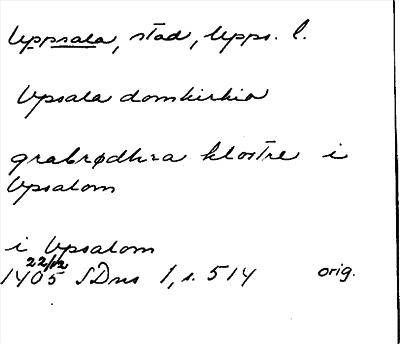 Uppsala, stad, Upps. l.
Upsala domkirkio
grabrødhra klostre i
Upsalom
i Upsalom
22/12
1405 SDns 1, s. 514 orig.